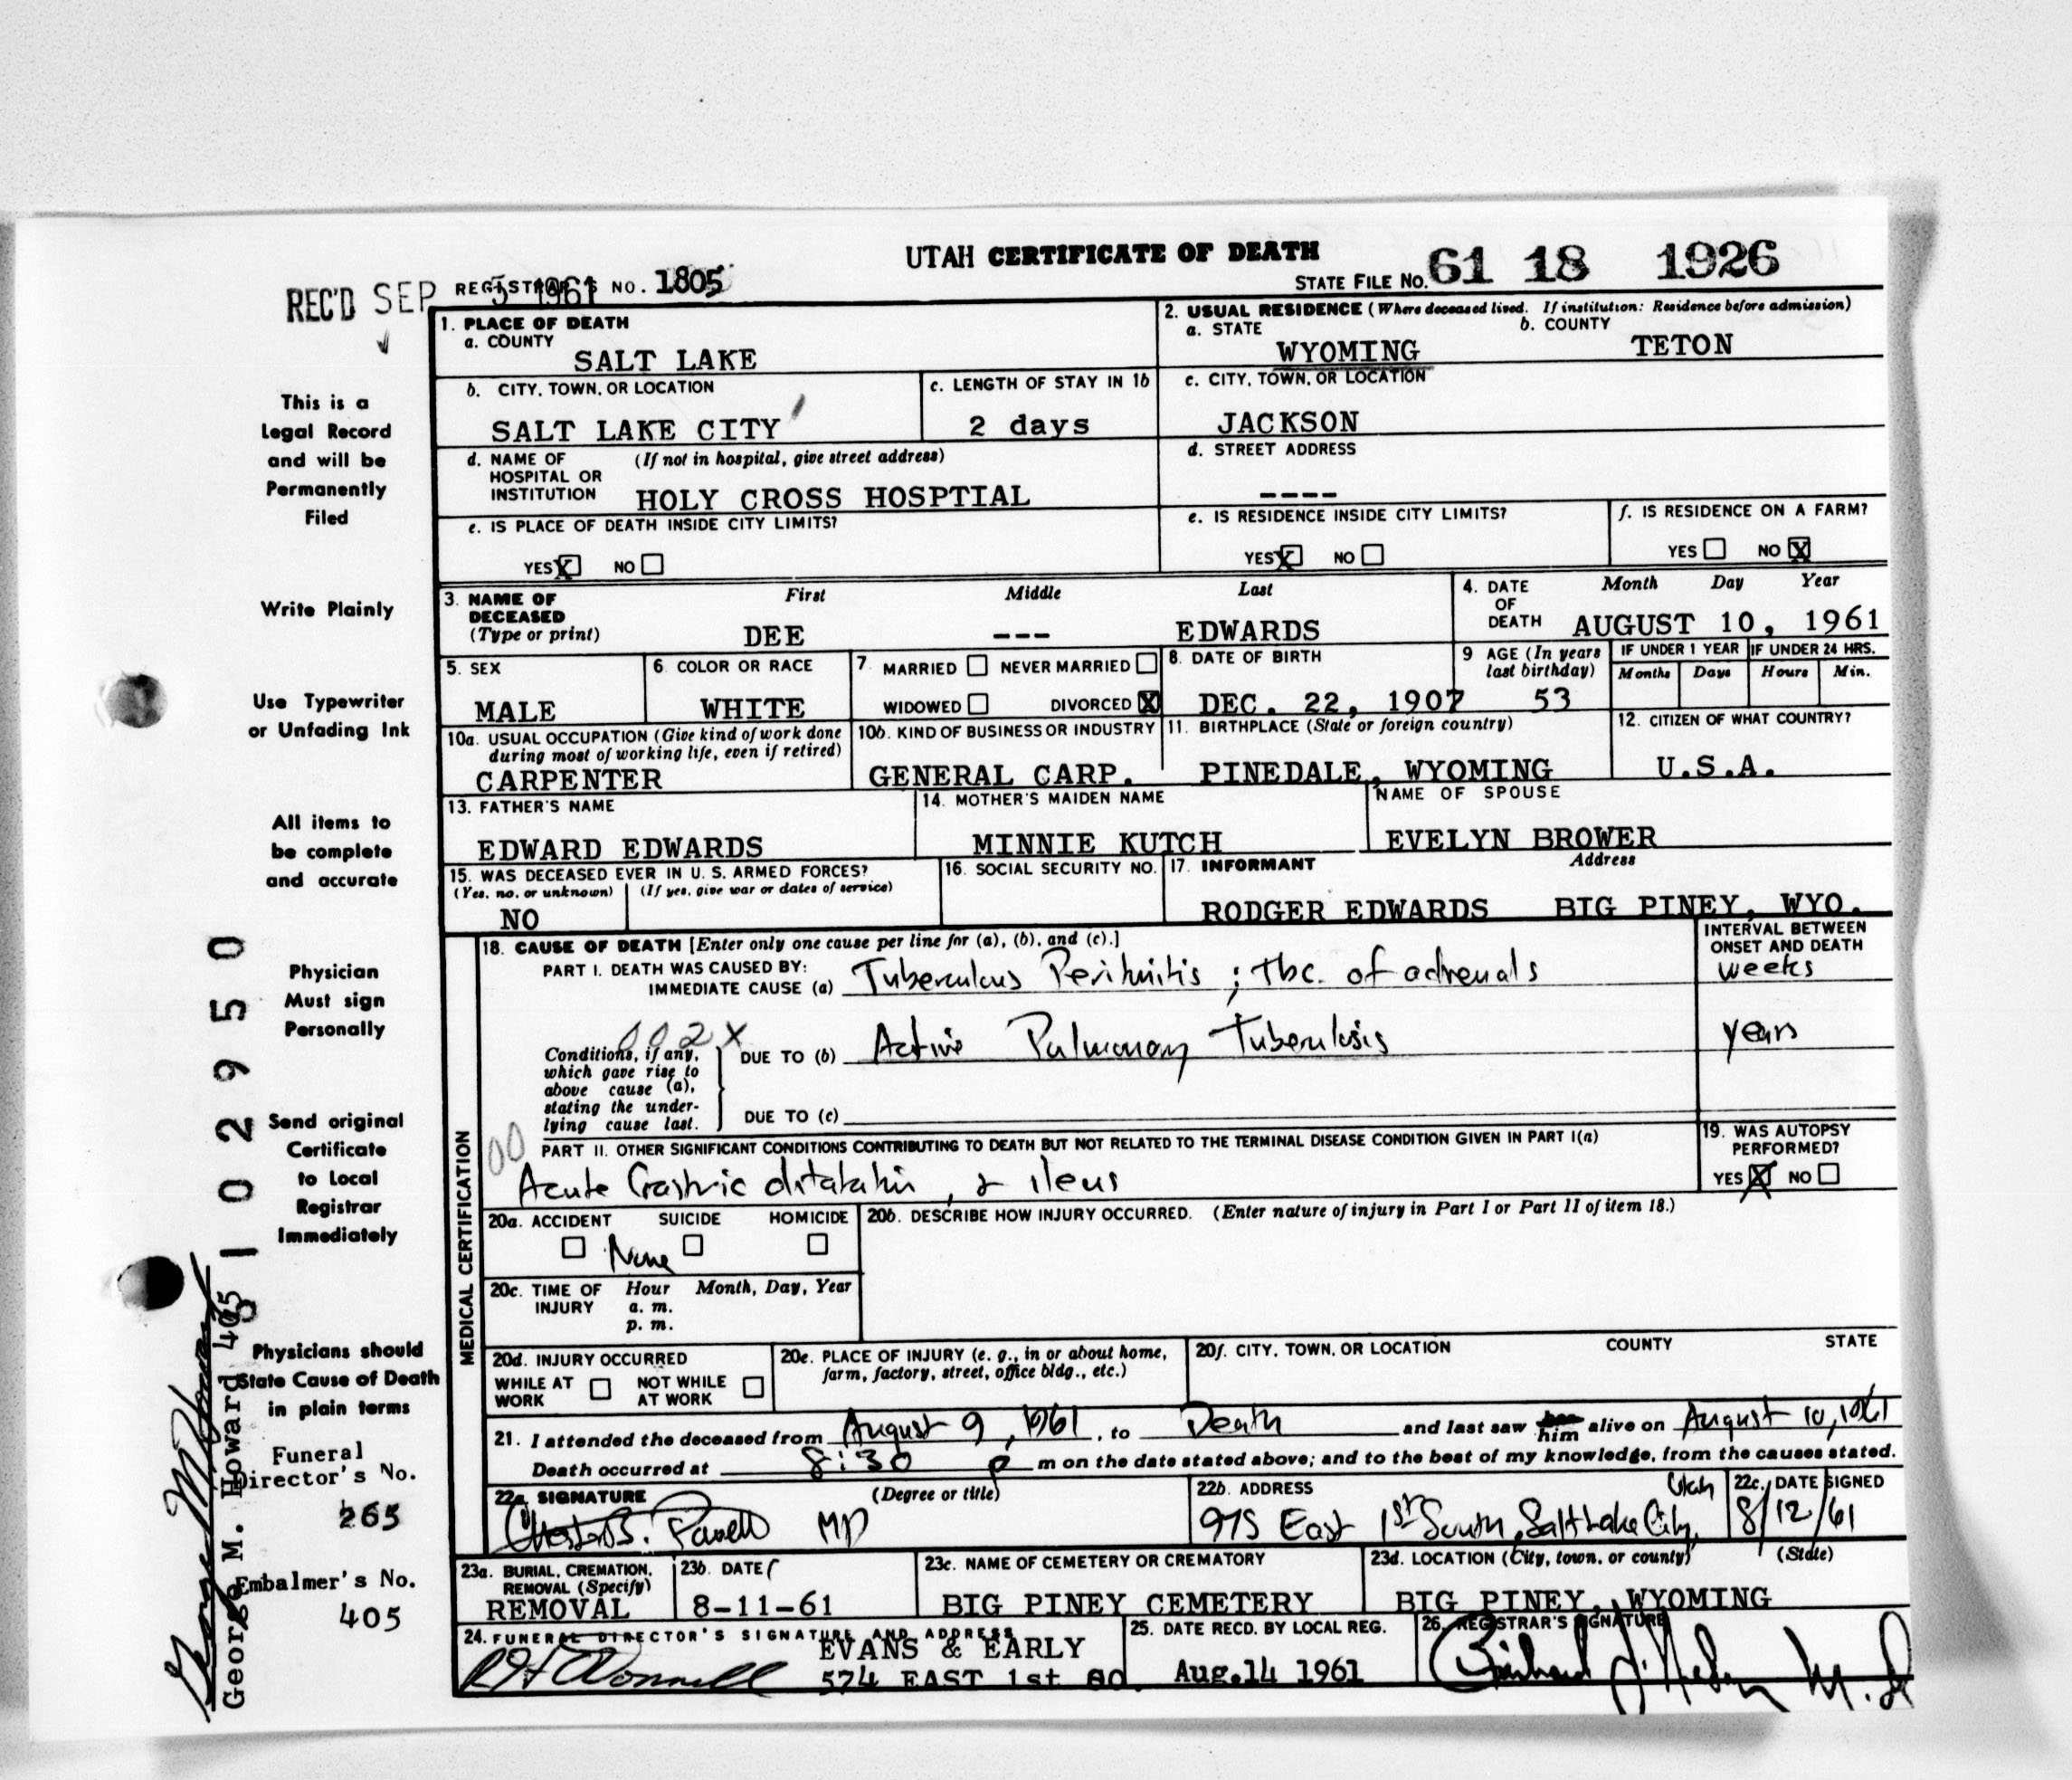 UTAH CERTIFICATE OF DEATH
STATE FILE NO. 61 18 1926
REC'D SEP 5 1961
REGISTRAR'S NO. 1805
1. PLACE OF DEATH
a. COUNTY
SALT LAKE
2. USUAL RESIDENCE (Where deceased lived. If institution: Residence before admission)
a. STATE
WYOMING
b. COUNTY
TETON
b. CITY, TOWN, OR LOCATION
SALT LAKE CITY
c. LENGTH OF STAY IN 1b
2 days
c. CITY, TOWN, OR LOCATION
JACKSON
d. NAME OF HOSPITAL OR INSTITUTION (If not in hospital, give street address)
HOLY CROSS HOSPTIAL
d. STREET ADDRESS
----
e. IS PLACE OF DEATH INSIDE CITY LIMITS?
YES X NO
e. IS RESIDENCE INSIDE CITY LIMITS?
YES X NO
f. IS RESIDENCE ON A FARM?
YES NO X
3. NAME OF DECEASED (Type or print)
First Middle Last
DEE --- EDWARDS
4. DATE OF DEATH
Month Day Year
AUGUST 10, 1961
5. SEX
MALE
6. COLOR OR RACE
WHITE
7. MARRIED NEVER MARRIED
WIDOWED DIVORCED X
8. DATE OF BIRTH
DEC. 22, 1907
9 AGE (In years last birthday)
53
IF UNDER 1 YEAR
Months Days
IF UNDER 24 HRS.
Hours Min.
10a. USUAL OCCUPATION (Give kind of work done during most of working life, even if retired)
CARPENTER
10b. KIND OF BUSINESS OR INDUSTRY
GENERAL CARP.
11. BIRTHPLACE (State or foreign country)
PINEDALE, WYOMING
12. CITIZEN OF WHAT COUNTRY?
U.S.A.
13. FATHER'S NAME
EDWARD EDWARDS
14. MOTHER'S MAIDEN NAME
MINNIE KUTCH
NAME OF SPOUSE
EVELYN BROWER
15. WAS DECEASED EVER IN U. S. ARMED FORCES?
(Yes, no, or unknown) (If yes, give war or dates of service)
NO
16. SOCIAL SECURITY NO.
17. INFORMANT Address
RODGER EDWARDS BIG PINEY, WYO.
MEDICAL CERTIFICATION
18. CAUSE OF DEATH [Enter only one cause per line for (a), (b), and (c).]
INTERVAL BETWEEN ONSET AND DEATH
PART I. DEATH WAS CAUSED BY:
IMMEDIATE CAUSE (a) Tuberculous Peritonitis ; Tbc. of adrenals
weeks
002X
Conditions, if any, which gave rise to above cause (a), stating the underlying cause last.
DUE TO (b) Active Pulmonary Tuberculosis
years
DUE TO (c)
00
PART II. OTHER SIGNIFICANT CONDITIONS CONTRIBUTING TO DEATH BUT NOT RELATED TO THE TERMINAL DISEASE CONDITION GIVEN IN PART I(a)
Acute Gastric dilatation, & ileus
19. WAS AUTOPSY PERFORMED?
YES X NO
20a. ACCIDENT SUICIDE HOMICIDE
None
20b. DESCRIBE HOW INJURY OCCURRED. (Enter nature of injury in Part I or Part II of item 18.)
20c. TIME OF INJURY
Hour Month, Day, Year
a. m.
p. m.
20d. INJURY OCCURRED
WHILE AT WORK NOT WHILE AT WORK
20e. PLACE OF INJURY (e. g., in or about home, farm, factory, street, office bldg., etc.)
20f. CITY, TOWN, OR LOCATION COUNTY STATE
21. I attended the deceased from August 9, 1961, to Death and last saw her him alive on August 10, 1961
Death occurred at 8:30 p m on the date stated above; and to the best of my knowledge, from the causes stated.
22a. SIGNATURE (Degree or title)
Chester B. Powell MD
22b. ADDRESS
975 East 1st South, Salt Lake City, Utah
22c. DATE SIGNED
8/12/61
23a. BURIAL, CREMATION, REMOVAL (Specify)
REMOVAL
23b. DATE
8-11-61
23c. NAME OF CEMETERY OR CREMATORY
BIG PINEY CEMETERY
23d. LOCATION (City, town, or county) (State)
BIG PINEY, WYOMING
24. FUNERAL DIRECTOR'S SIGNATURE AND ADDRESS
EVANS & EARLY
574 EAST 1st SO.
25. DATE RECD. BY LOCAL REG.
Aug.14 1961
26. REGISTRAR'S SIGNATURE
M.D.
This is a
Legal Record
and will be
Permanently
Filed
Write Plainly
Use Typewriter
or Unfading Ink
All items to
be complete
and accurate
Physician
Must sign
Personally
Send original
Certificate
to Local
Registrar
Immediately
Physicians should
State Cause of Death
in plain terms
Funeral
Director's No.
265
Embalmer's No.
405
George M. Howard 405
1 0 2 9 5 0